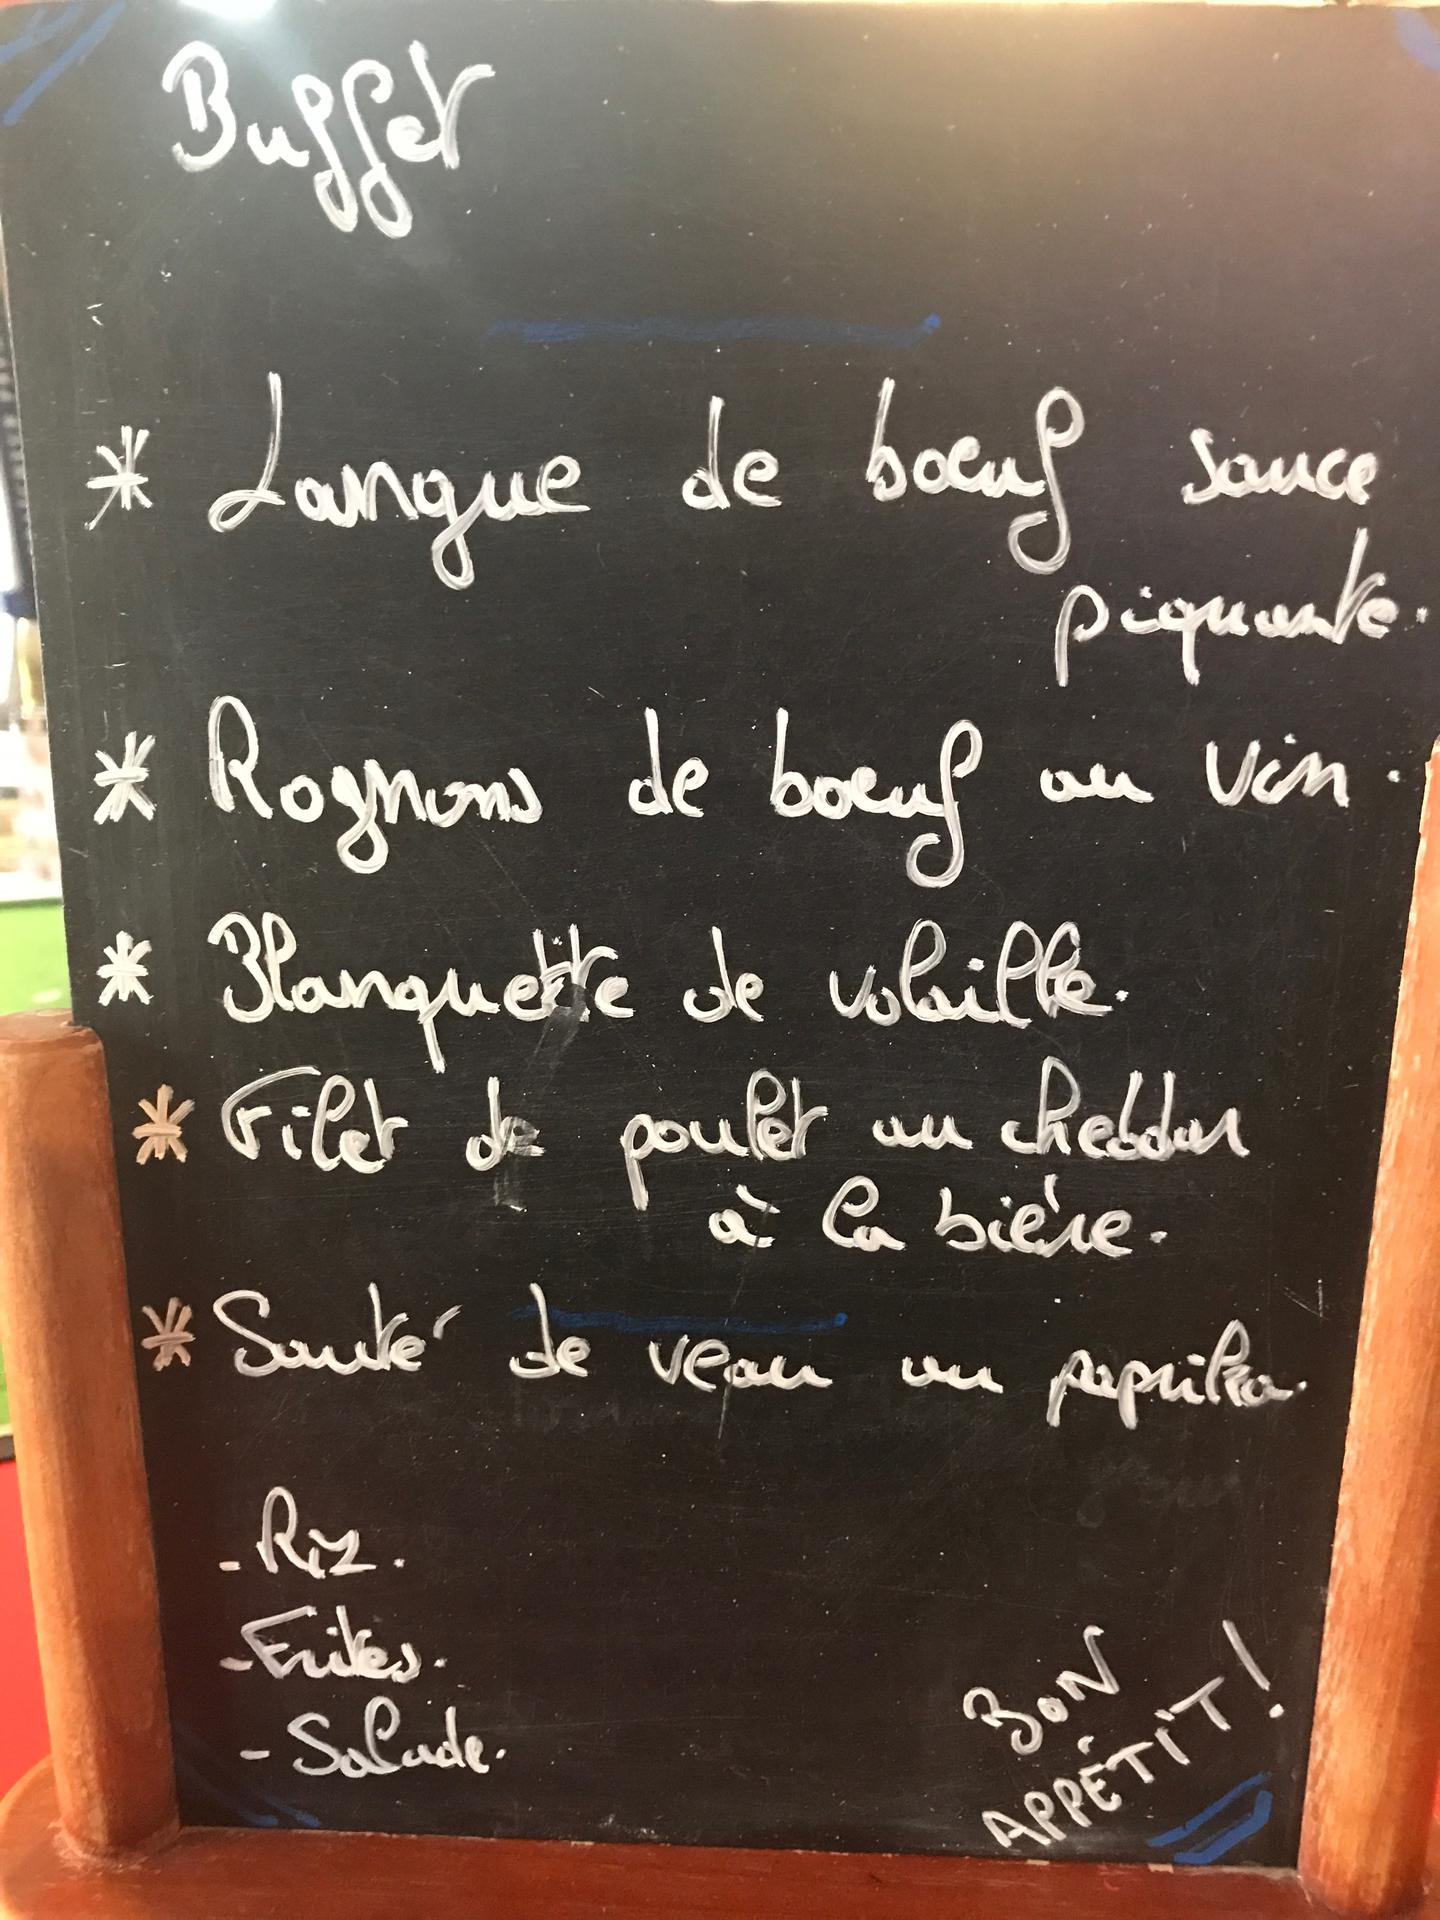 Buffet
* Langue de bœuf sauce
piquante.
* Rognons de bœuf au vin.
* Blanquette de volaille.
* Filet de poulet au cheddar
à la bière.
* Sauté de veau au paprika.
- Riz.
- Frites.
- Salade.
BON
APPÉTIT !